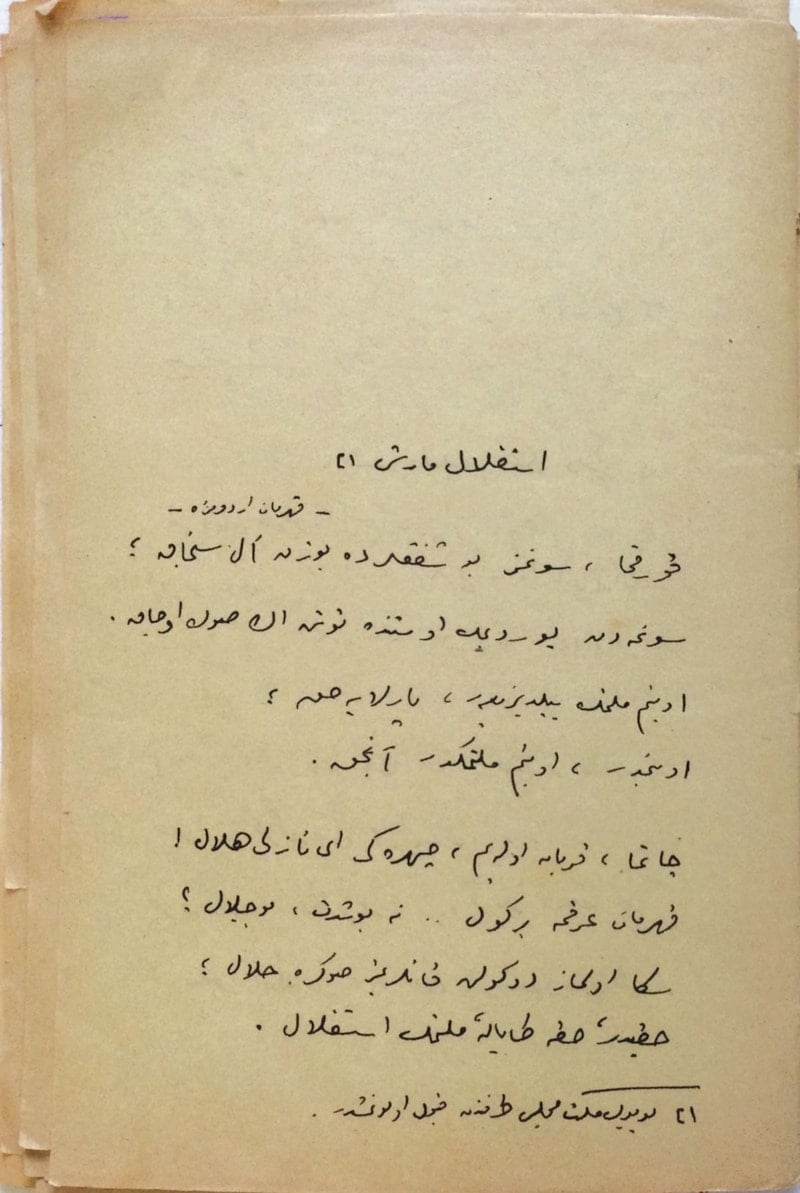 استقلال مارشی ٢١
— قهرمان اردومزه —
قورقما ، سونمز بو شفقلرده یوزن آل سنجاق ؛
سونمه‌دن یوردیمك اوستنده توتن اڭ صوڭ اوجاق .
او بنم ملتمك ییلدیزیدر ، پارلایه‌جق ؛
او بنمدر ، او بنم ملتمكدر آنجق .
چاتما ، قربان اوله‌یم ، چهره‌كی ای نازلی هلال !
قهرمان عرقمه بر كول .. نه بو شدت ، بو جلال ؟
سكا اولماز دوكولن قانلریمز صوكره حلال ؛
حقیدر ، حقه طاپان ، ملتمك استقلال .
٢١ بویوك ملت مجلسی طرفندن قبول اولونمشدر .